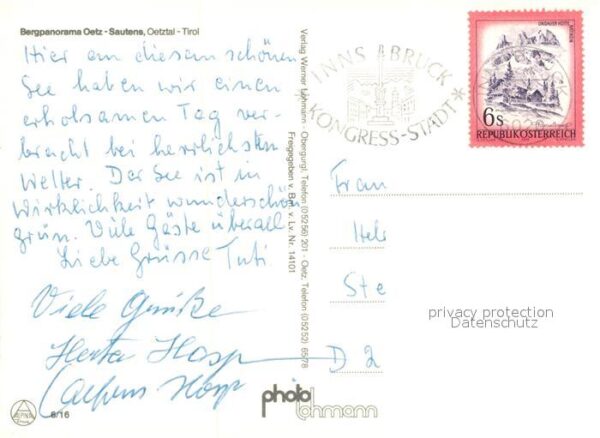 Bergpanorama Oetz - Sautens, Oetztal - Tirol
Hier an diesem schönen
See haben wir einen
erholsamen Tag ver-
bracht bei herrlichstem
Wetter. Der See ist in
Wirklichkeit wunderschön
grün. Viele Gäste überall
Liebe Grüsse Tuti
Viele Grüße
Herta Hosp
Hosp
8/16
Verlag Werner Lohmann Obergurgl, Telefon (05256) 201 - Oetz, Telefon (05252) 6578
Freigegeben v. BM. v. Lv. Nr. 14101
photo
lohmann
INNSBRUCK
KONGRESS-STADT *
LINDAUER HÜTTE, RÄTIKON
6S
REPUBLIK ÖSTERREICH
Frau
Hel
Ste
D 2
privacy protection
Datenschutz